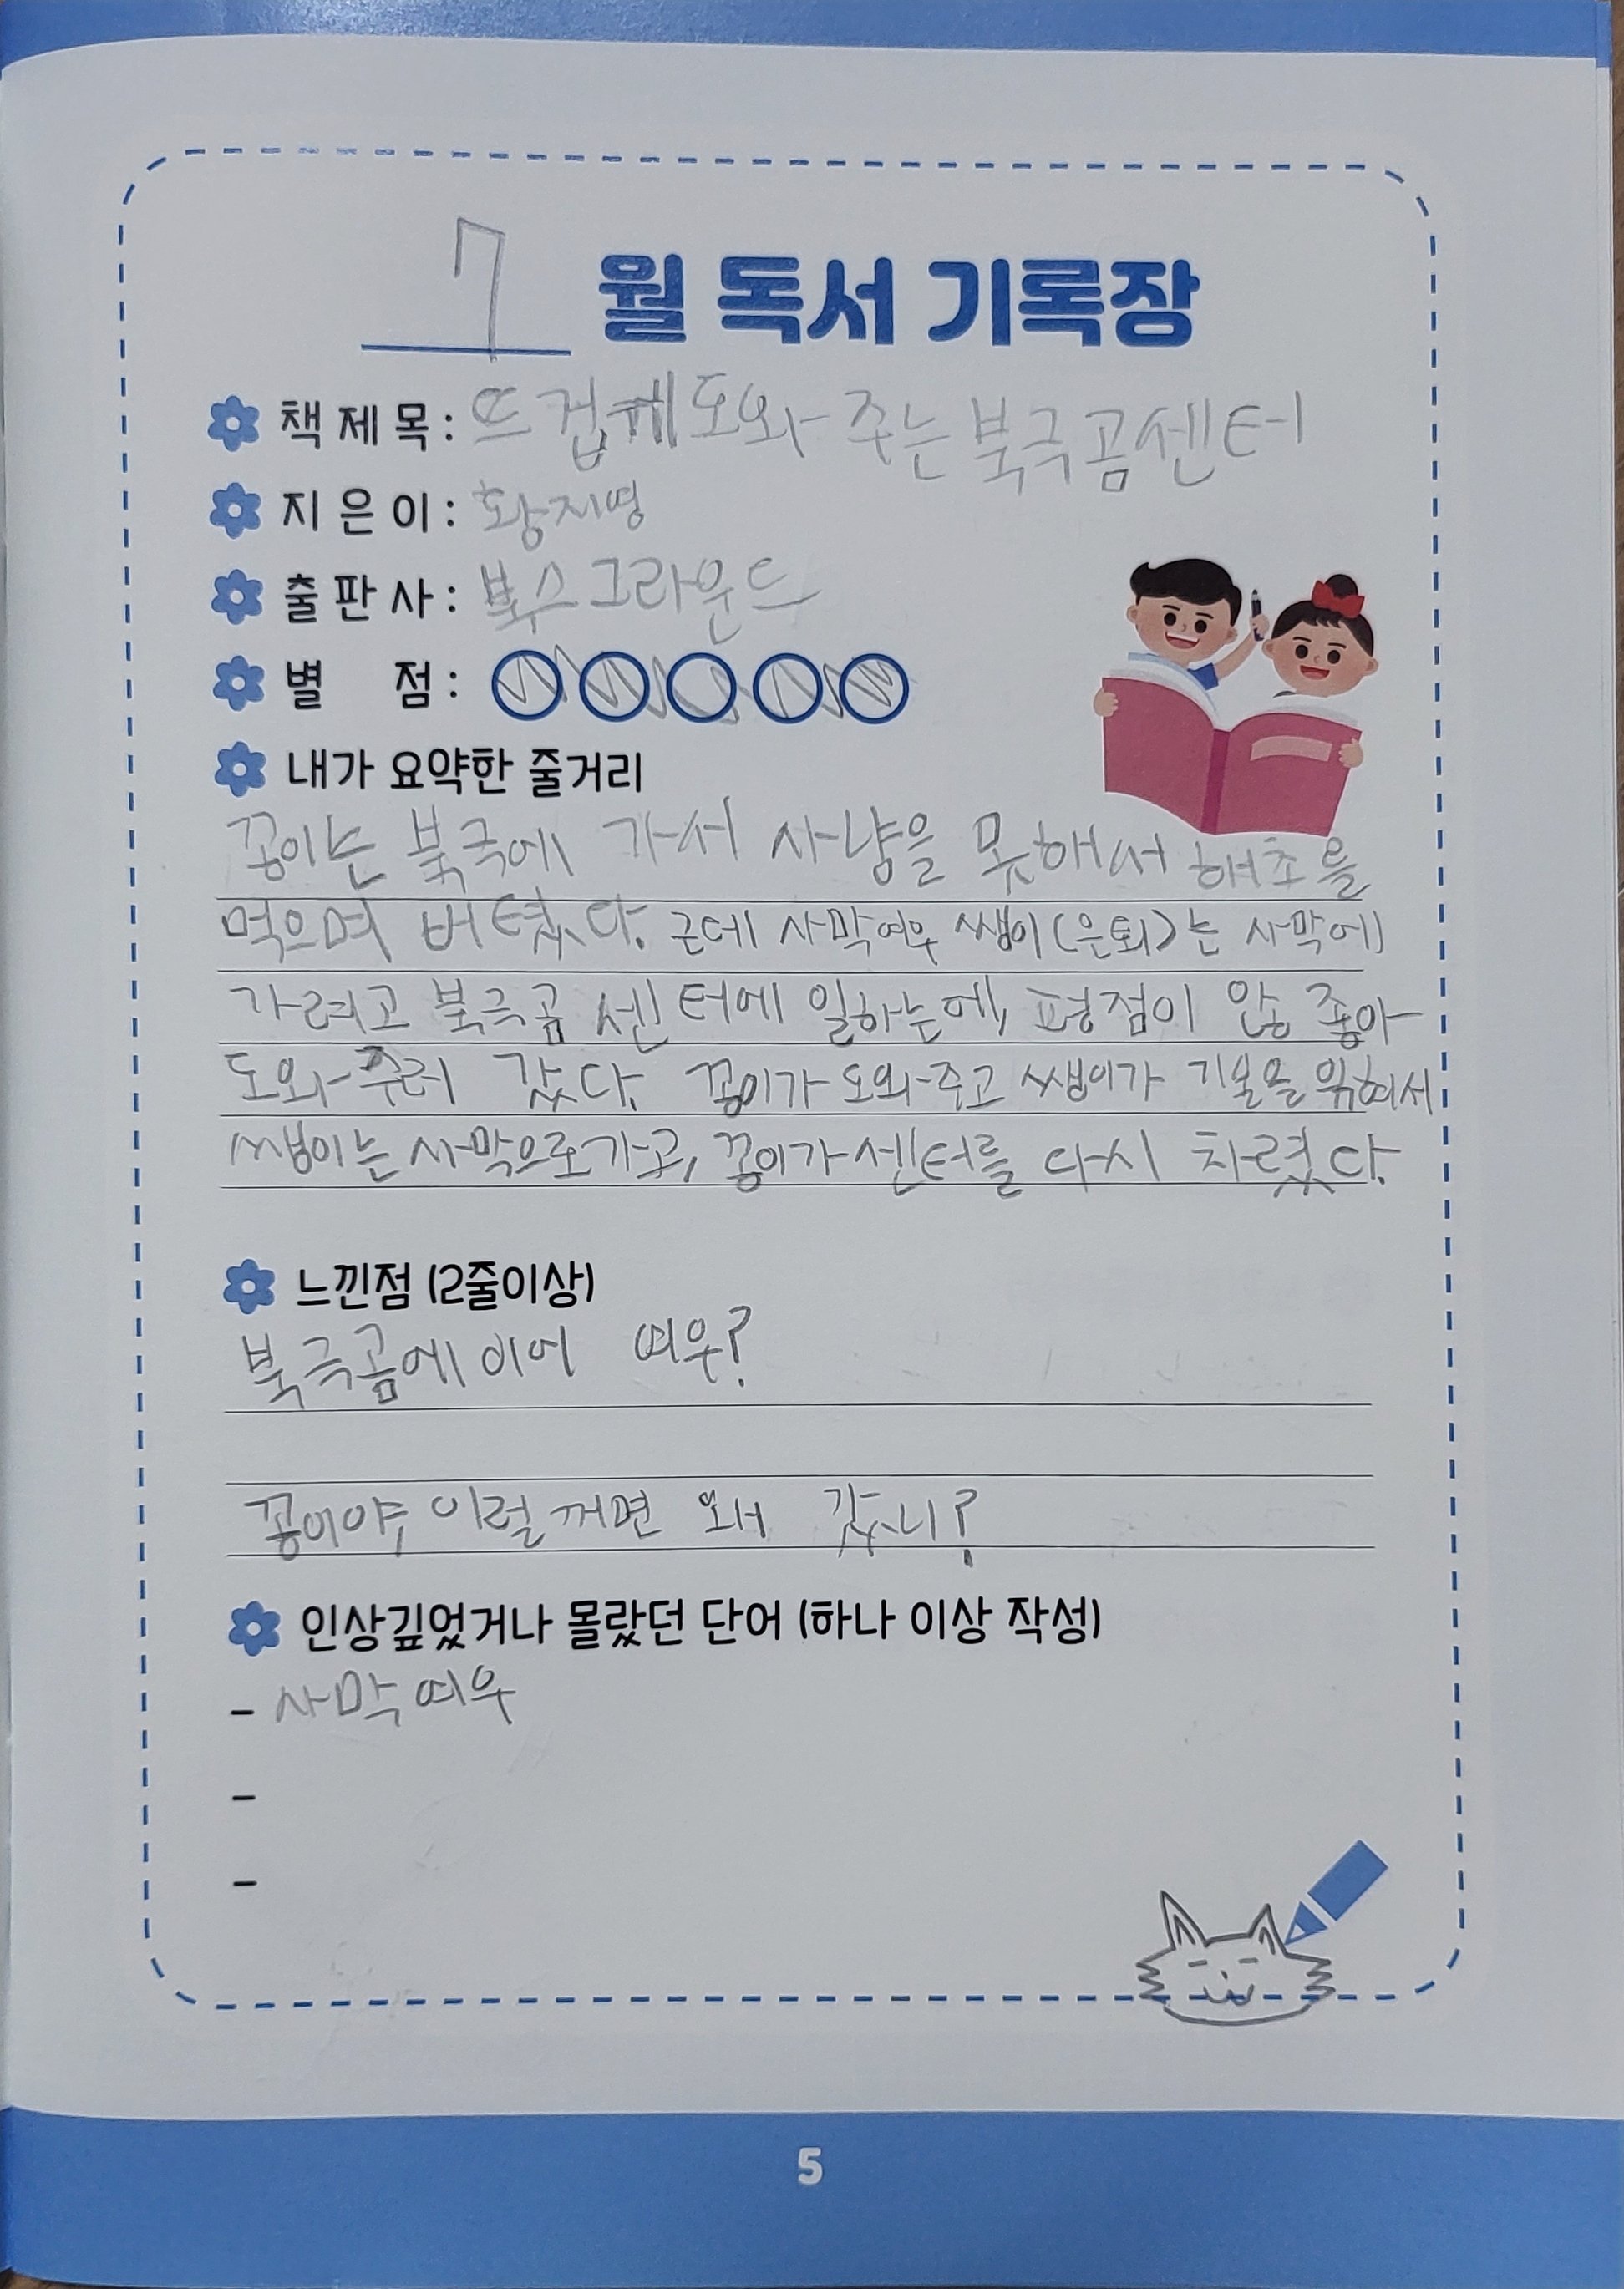 7월 독서 기록장
책 제 목 : 뜨겁게 도와주는 북극곰센터
지 은 이 : 황지영
출 판 사 : 북스그라운드
별 점 :
내가 요약한 줄거리
꽁이는 북극에 가서 사냥을 못해서 해초을
먹으며 버텼다. 근데 사막여우 쌤이(은퇴)는 사막에
가려고 북극곰 센터에 일하는에, 평점이 않 좋아
도와주러 갔다. 꽁이가 도와주고 쌤이가 기불을 익혀서
쌤이는 사막으로가고, 꽁이가 센터를 다시 차렸다.
느낀점 (2줄이상)
북극곰에 이어 여우?
꽁이야, 이럴꺼면 왜 갔니?
인상깊었거나 몰랐던 단어 (하나 이상 작성)
- 사막여우
-
-
5